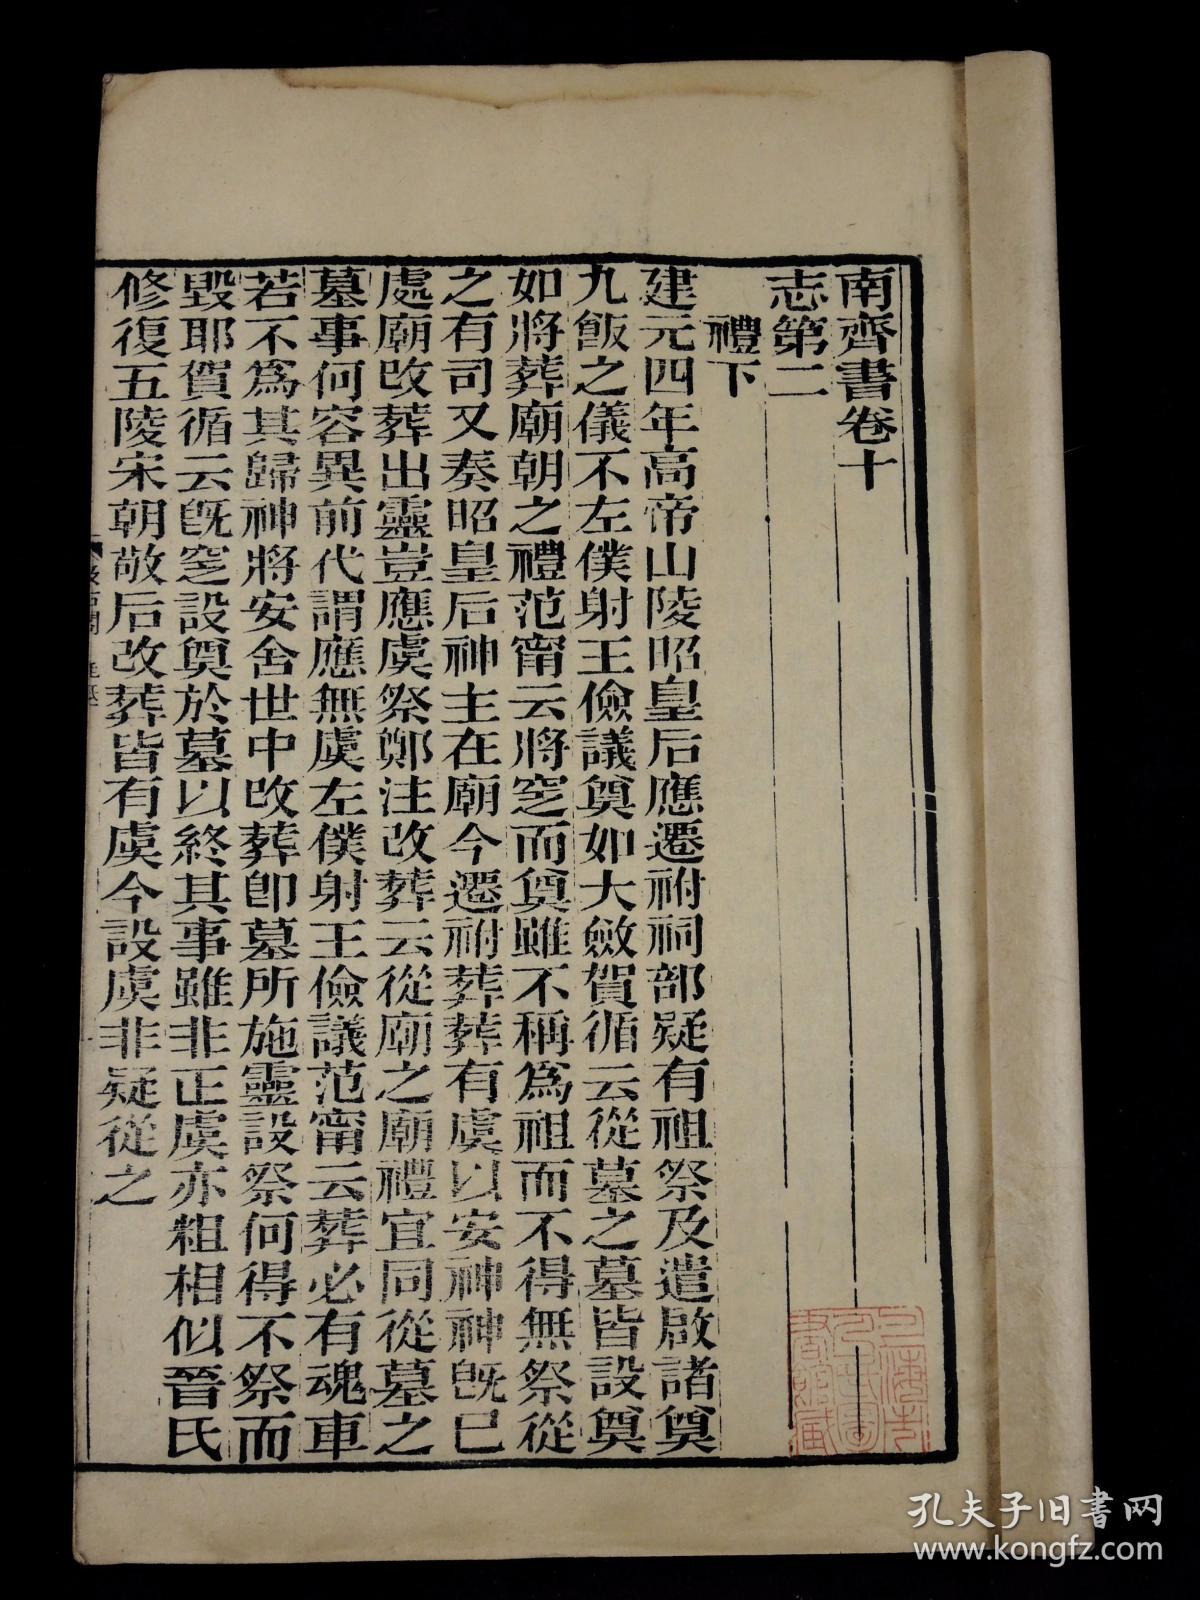 南齊書卷十
志第二
禮下
建元四年高帝山陵昭皇后應遷祔祠部疑有祖祭及遣啟諸奠
九飯之儀不左僕射王儉議奠如大斂賀循云從墓之墓皆設奠
如將葬廟朝之禮范甯云將窆而奠雖不稱爲祖而不得無祭從
之有司又奏昭皇后神主在廟今遷祔葬葬有虞以安神神旣已
處廟改葬出靈豈應虞祭鄭注改葬云從廟之廟禮宜同從墓之
墓事何容異前代謂應無虞左僕射王儉議范甯云葬必有魂車
若不爲其歸神將安舍世中改葬卽墓所施靈設祭何得不祭而
毀耶賀循云旣窆設奠於墓以終其事雖非正虞亦粗相似晉氏
修復五陵宋朝敬后改葬皆有虞今設虞非疑從之
孔夫子旧書网
www.kongfz.com